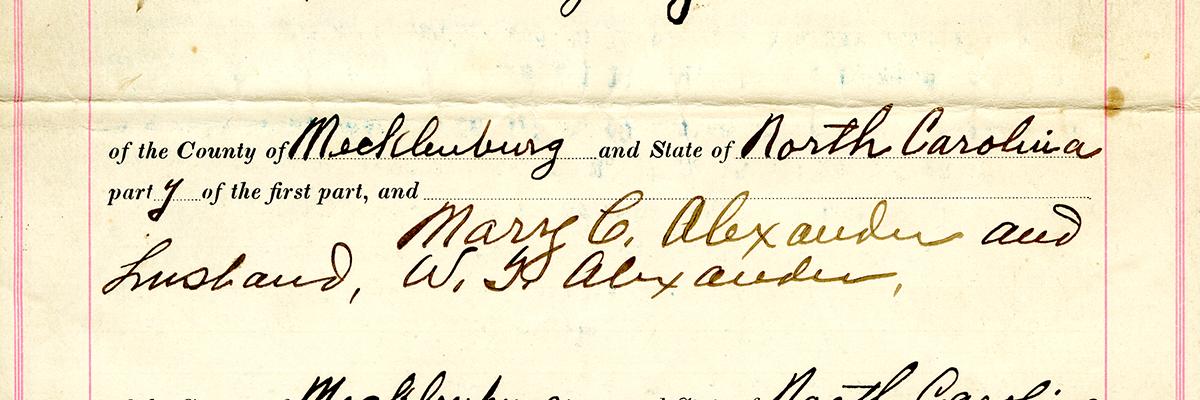 of the County of Mecklenburg and State of North Carolina
party of the first part, and
Mary C. Alexander and
husband, W. F. Alexander,
Mecklenburg North Carolina